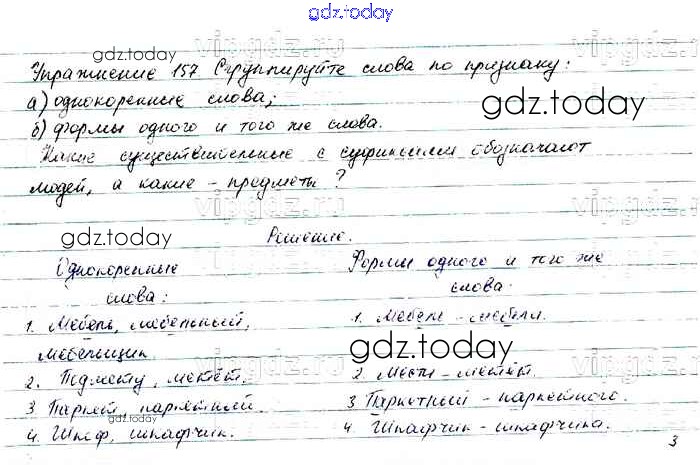 gdz.today
Упражнение 157 Сгруппируйте слова по признаку:
а) однокоренные слова;
б) формы одного и того же слова.
Какие существительные с суффиксами обозначают
людей, а какие - предметы?
Решение.
Однокоренные
слова:
1. Мебель, мебельный,
мебельщик.
2. Подмету, метёт.
3 Паркет, паркетный.
4. Шкаф, шкафчик.
Формы одного и того же
слова.
1. Мебель - мебели.
2. Мести - метёт.
3 Паркетный - паркетного.
4. Шкафчик - шкафчика.
3
gdz.today
gdz.today
gdz.today
gdz.today
gdz.today
vipgdz.ru
vipgdz.ru
vipgdz.ru
vipgdz.ru
vipgdz.ru